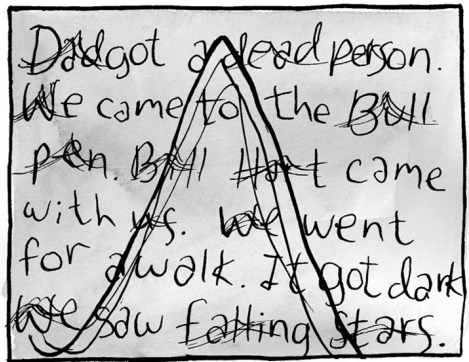 Dad got a dead person.
We came to the Bull
pen. Bill Hart came
with us. We went
for a walk. It got dark
We saw falling stars.